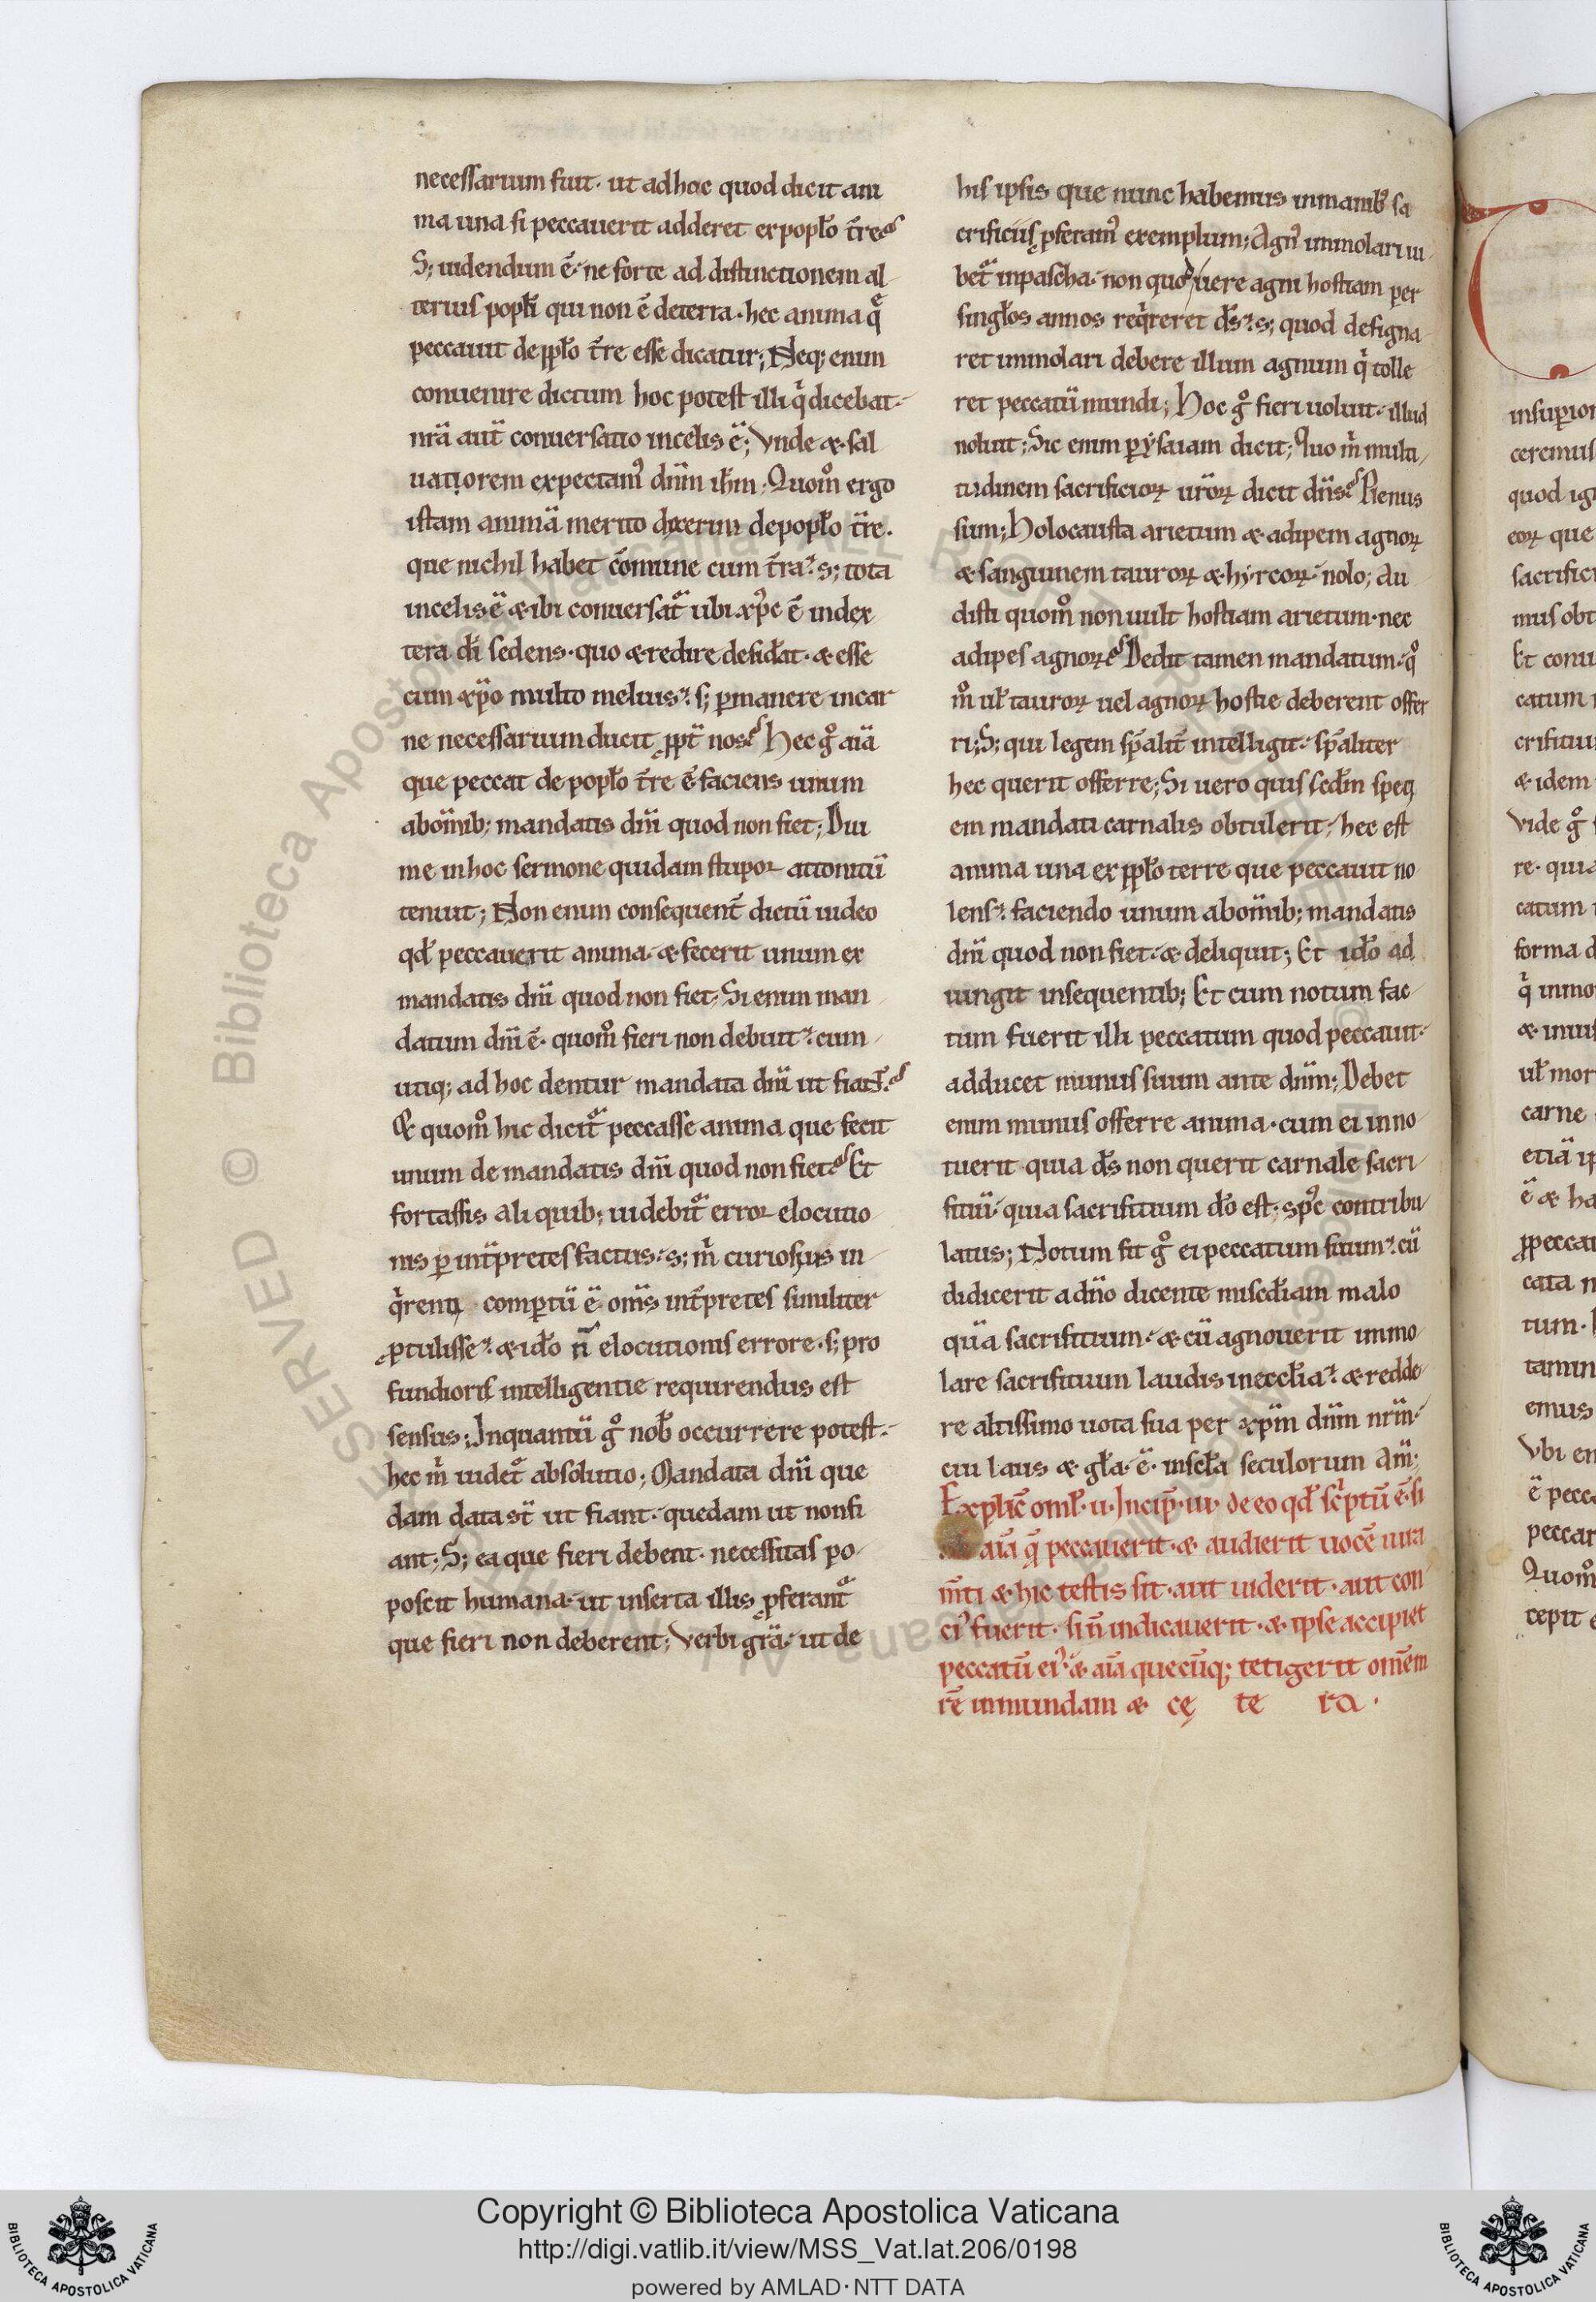 necessarium fuit· ut ad hoc quod dicit ani
ma una si peccauerit adderet ex popl̄o t̄re
S; uidendum ē· ne forte ad distinctionem al-
terius popl̄i qui non ē de terra· hec anima q̄
peccauit de ppl̄o t̄re esse dicatur; Neq; enim
conuenire dictum hoc potest illi q̇ dicebat·
nr̄a aut̄ conuersatio in celis ē; Vnde & sal
uatiorem expectam᾽ dn̄m ih̄m; Quom̊ ergo
istam animā merito dixerim de popl̄o t̄re·
que nichil habet c̄omune cum t̄ra? s; tota
in celis ē & ibi conuersat᷑ ubi xp̄c ē in dex
tera dī sedens· quo & redire desid̄at· & esse
cum xp̄o multo melius? s; ꝑmanere in car
ne necessarium ducit ꝓpt̄ nos? Hec g̊ aīa
que peccat de popl̄o t̄re ē faciens unum
ab om̄ib; mandatis dn̄i quod non fiet; Diu
me in hoc sermone quidam stupor attonitū
tenuit; Non enim consequent̄ dictū uideo
qd̄ peccauerit anima· & fecerit unum ex
mandatis dn̄i quod non fiet; Si enim man-
datum dn̄i ē· quom̊ fieri non debuit? cum
utiq; ad hoc dentur mandata dn̄i ut fiant?
& quom̊ hic dicit᷑ peccasse anima que fecit
unum de mandatis dn̄i quod non fiet? Et
fortassis aliquib; uidebit᷑ error elocutio
nis ꝑ int̄pretes factus· s; m̊ curiosius in-
q̇renti compertū ē om̄s int̄pretes similiter
ꝓtulisse? & id̄o n̄ elocutionis errore· s; pro
fundioris intelligentie requirendus est
sensus; Inquantū g̊ nob̄ occurrere potest·
hec m̊ uidet᷑ absolutio; Mandata dn̄i que
dam data st̄ ut fiant· quedam ut non fi
ant; S; ea que fieri debent· necessitas po-
poscit humana· ut inserta illis ꝓferant᷑
que fieri non deberent; Verbi gr̄a· ut de
his ipsis que nunc habemus in manib; sa
crificiis ꝓferam᾽ exemplum; Agn᾽ immolari iu-
bet᷑ in pascha· non quod uere agni hostiam per
singl̄os annos req̇reret d̄s? s; quod designa-
ret immolari debere illum agnum q̇ tolle
ret peccatū mundi; Hoc g̊ fieri uoluit· illud
noluit; Sic enim ꝑ ysaiam dicit; Quo m̊ multi-
tudinem sacrificioꝝ ur̄oꝝ dicit dn̄s? Plenus
sum; Holocausta arietum & adipem agnoꝝ
& sanguinem tauroꝝ & hyrcoꝝ nolo; Au
disti quom̊ non uult hostiam arietum· nec
adipes agnoꝝ? Dedit tamen mandatum· q̊
m̊ ul̄ tauroꝝ uel agnoꝝ hostie deberent offer
ri; S; qui legem sp̄alit̄ intelligit· sp̄aliter
hec querit offerre; Si uero quis sed̄m speci
em mandati carnalis obtulerit· hec est
anima una ex ppl̄o terre que peccauit no
lens? faciendo unum ab om̄ib; mandatis
dn̄i quod non fiet· & deliquit; Et id̄o ad
iungit in sequentib; Et cum notum fac-
tum fuerit illi peccatum quod peccauit·
adducet munus suum ante dn̄m; Debet
enim munus offerre anima· cum ei inno-
tuerit quia d̄s non querit carnale sacri-
fitiū· quia sacrifitium d̄o est· sp̄c contribu-
latus; Notum fit g̊ ei peccatum suum? cū
didicerit a dn̄o dicente misc̄diam malo
quā sacrifitium· & cū agnouerit immo-
lare sacrifitium laudis in eccl̄ia? & redde-
re altissimo uota sua per xp̄m dn̄m nr̄m·
cui laus & gl̄a· ē· in scl̄a seculorum Am̄;
Explic̄ omł· ii· Incip̄· iii· de eo qd̄ sċptū ē· si
aīa q̄ peccauerit· & audierit uocē iura
m̄ti & hic testis sit· aut uiderit· aut con-
ci᾽ fuerit· si n̄ indicauerit· & ipse accipiet
peccatū ei᾽· & aīa quecūq; tetigerit om̄em
rē inmundam & cę te ra·
insuperior
ceremus
quod ig
eoꝝ que
sacrific
mus obt
Et conu
catum
crifitiu
& idem
Vide g̊
re· quia
catum
forma d
q̇ inmo
& imus
ul̄ mor
carne
etiā ip
ē & ha
ꝓpeccat
cata n
tum·
tamin
emus
Vbi en
ē pecc
peccar
Quom̊
cepit
Copyright © Biblioteca Apostolica Vaticana
http://digi.vatlib.it/view/MSS_Vat.lat.206/0198
powered by AMLAD·NTT DATA
BIBLIOTECA APOSTOLICA VATICANA
BIBLIOTECA APOSTOLICA VATICANA